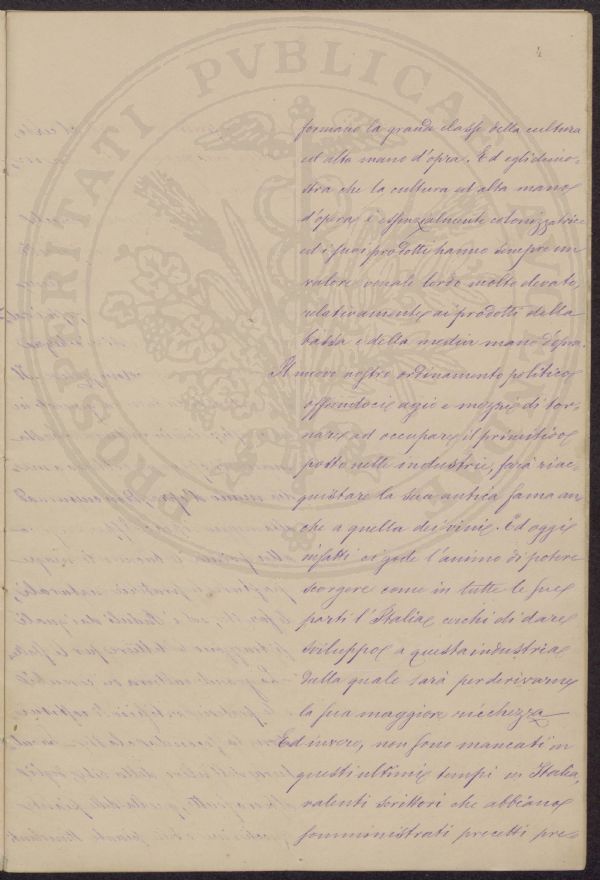 4
formano la grande classe della cultura
ad alta mano d'opra. Ed egli dimo-
stra che la cultura ad alta mano
d'opera è essenzialmente colonizzatrice
ed i suoi prodotti hanno sempre un
valore venale lordo molto elevato,
relativamente ai prodotti della
bassa e della media mano d'opra.
Il nuovo nostro ordinamento politico
offrendoci agio e mezzi di tor-
nare ad occupare il primitivo
posto nelle industrie, farà riac-
quistare la sua antica fama an-
che a quella dei vini. Ed oggi
infatti ci gode l'animo di potere
scorgere come in tutte le sue
parti l'Italia cerchi di dare
sviluppo a questa industria
dalla quale sarà per derivarne
la sua maggiore ricchezza
Ed invero, non sono mancati in
questi ultimi tempi in Italia,
valenti scrittori che abbiano
somministrati precetti pre-
PROSPERITATI PVBLICAE